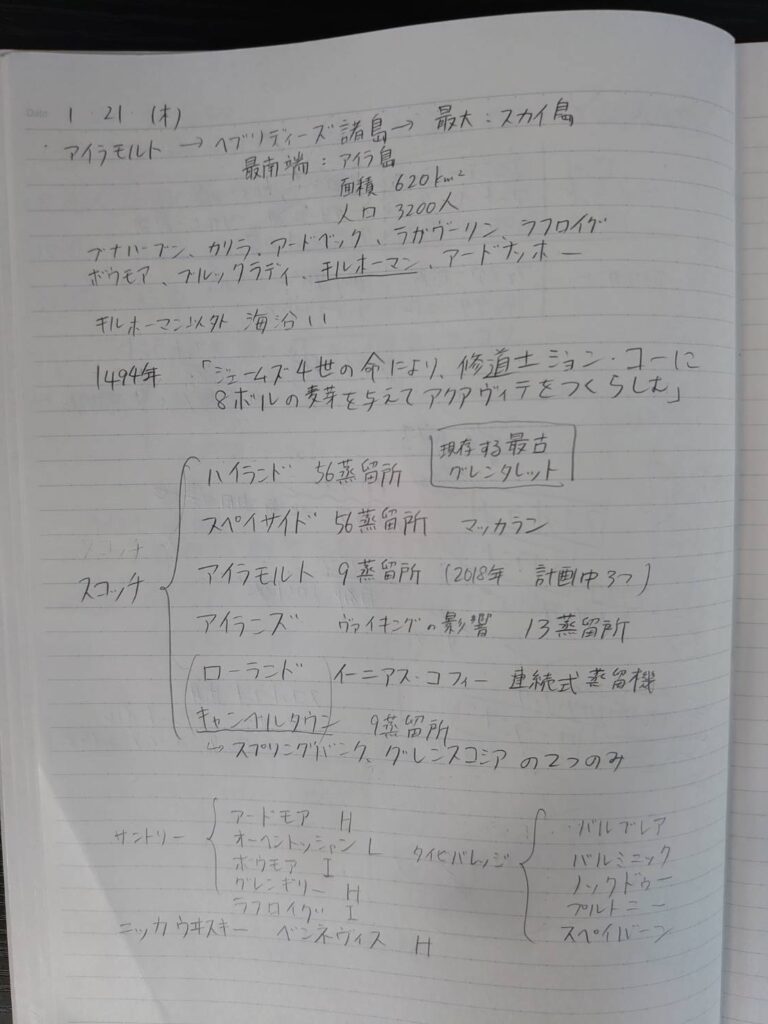 Date 1 ・ 21 ・ (木)
・アイラモルト → ヘブリディーズ諸島 → 最大：スカイ島
最南端：アイラ島
面積 620km²
人口 3200人
ブナハーブン、カリラ、アードベック、ラガヴーリン、ラフロイグ
ボウモア、ブルックラディ、キルホーマン、アードナッホー
キルホーマン以外 海沿い
1494年 「ジェームズ4世の命により、修道士ジョン・コーに
8ボルの麦芽を与えてアクアヴィテをつくらしむ」
ハイランド 56蒸留所
現存する最古
グレンタレット
スペイサイド 56蒸留所 マッカラン
スコッチ
スコッチ
アイラモルト 9蒸留所 (2018年 計画中3つ)
アイランズ ヴァイキングの影響 13蒸留所
ローランド イーニアス・コフィー 連続式蒸留機
キャンベルタウン 9蒸留所
↳ スプリングバンク、グレンスコシア の2つのみ
サントリー
アードモア H
オーヘントッシャン L
ボウモア I
グレンギリー H
ラフロイグ I
ニッカウヰスキー ベンネヴィス H
タイビバレッジ
バルブレア
バルミニック
ノックドゥー
プルトニー
スペイバーン